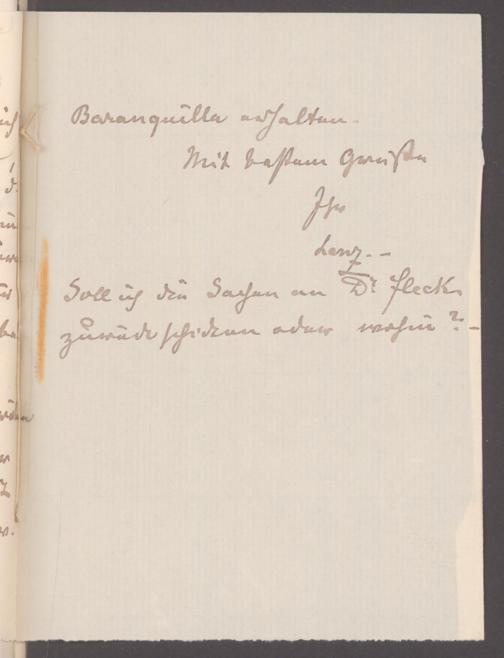 Baranquilla erhalten.
Mit bestem Gruße
Ihr
Lenz.-
Soll ich die Sachen an Dr Fleck
zurück schicken oder wohin? -